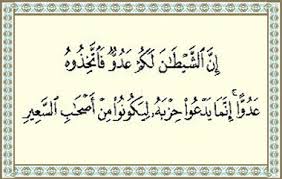 إِنَّ ٱلشَّيْطَٰنَ لَكُمْ عَدُوٌّ فَٱتَّخِذُوهُ
عَدُوًّا ۚ إِنَّمَا يَدْعُوا۟ حِزْبَهُۥ لِيَكُونُوا۟ مِنْ أَصْحَٰبِ ٱلسَّعِيرِ